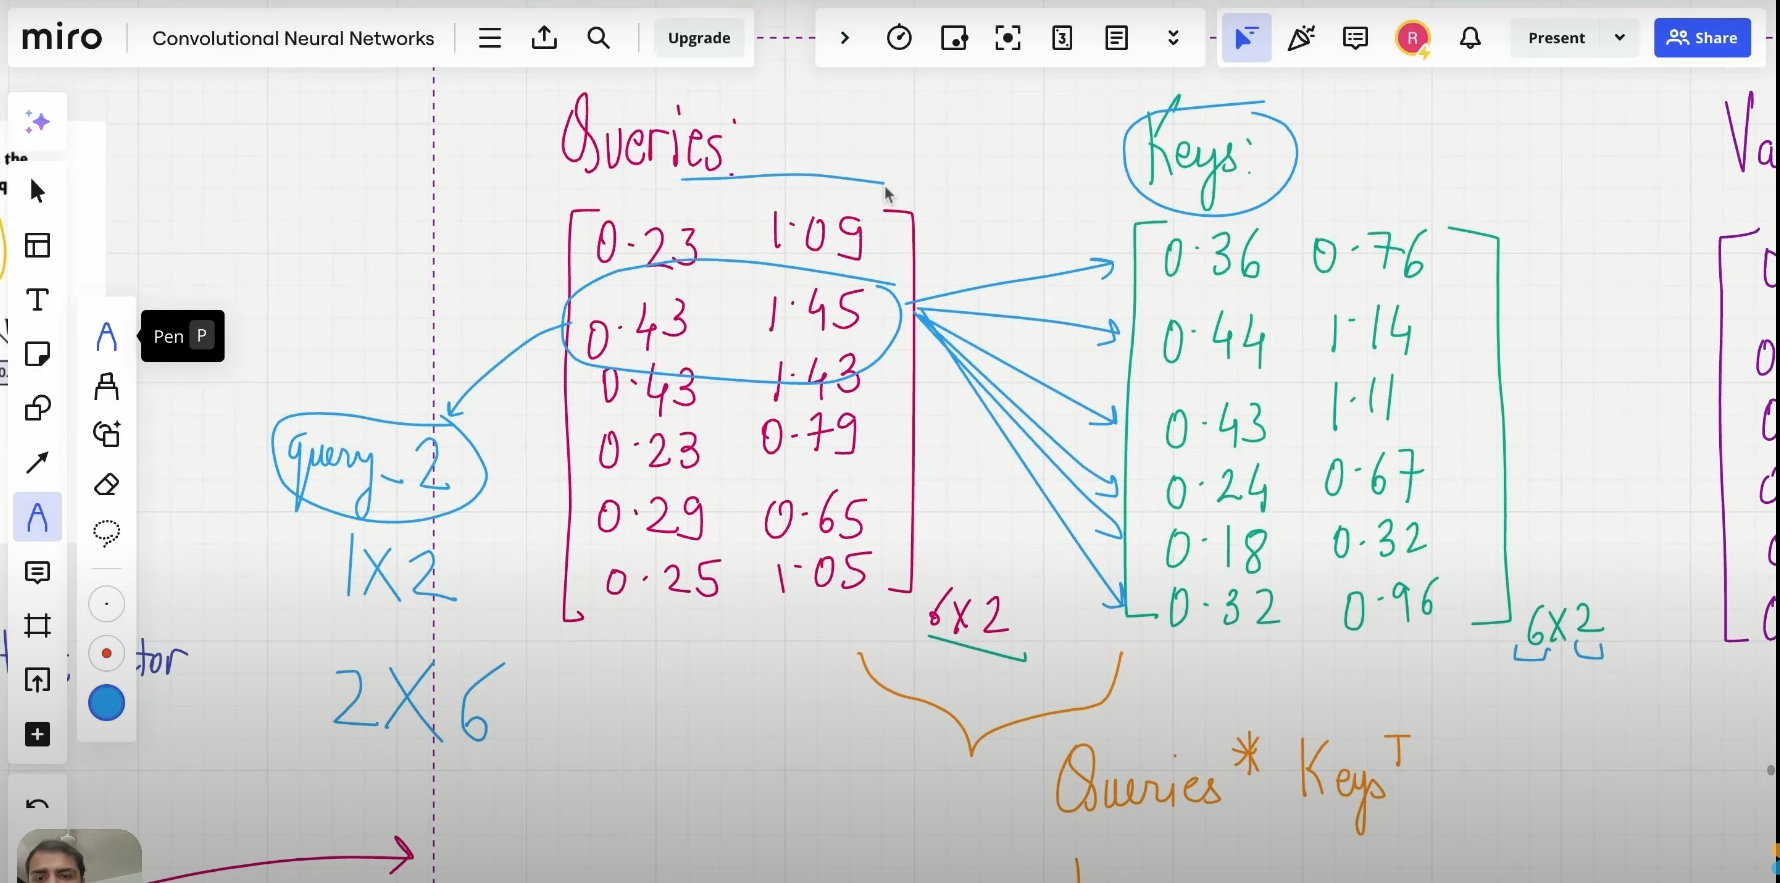 miro
Convolutional Neural Networks
Upgrade
3
R
Present
Share
the
q
T
Pen P
0.
Queries:
Keys:
Va
0.23 1.09
0.43 1.45
0.43 1.43
0.23 0.79
0.29 0.65
0.25 1.05
6X2
0.36 0.76
0.44 1.14
0.43 1.11
0.24 0.67
0.18 0.32
0.32 0.96
6X2
query_2
1X2
2X6
tor
Queries * Keys^T